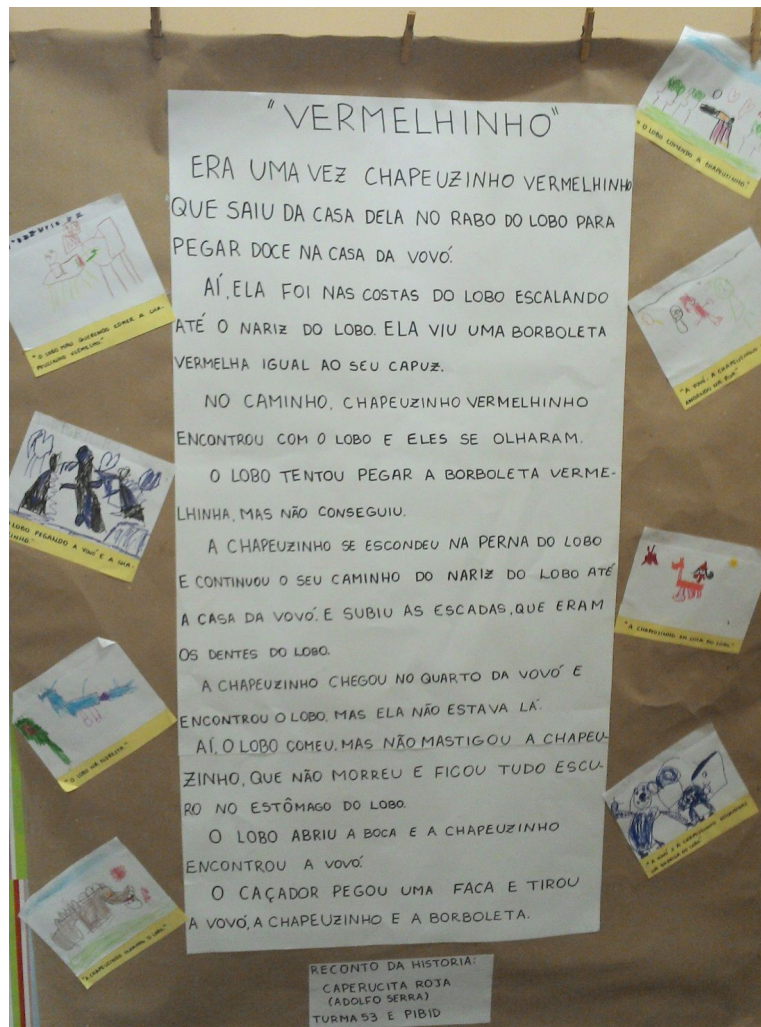 "VERMELHINHO"
ERA UMA VEZ CHAPEUZINHO VERMELHINHO
QUE SAIU DA CASA DELA NO RABO DO LOBO PARA
PEGAR DOCE NA CASA DA VOVÓ.
AÍ, ELA FOI NAS COSTAS DO LOBO ESCALANDO
ATÉ O NARIZ DO LOBO. ELA VIU UMA BORBOLETA
VERMELHA IGUAL AO SEU CAPUZ.
NO CAMINHO, CHAPEUZINHO VERMELHINHO
ENCONTROU COM O LOBO E ELES SE OLHARAM.
O LOBO TENTOU PEGAR A BORBOLETA VERME-
LHINHA, MAS NÃO CONSEGUIU.
A CHAPEUZINHO SE ESCONDEU NA PERNA DO LOBO
E CONTINUOU O SEU CAMINHO DO NARIZ DO LOBO ATÉ
A CASA DA VOVÓ. E SUBIU AS ESCADAS, QUE ERAM
OS DENTES DO LOBO.
A CHAPEUZINHO CHEGOU NO QUARTO DA VOVÓ E
ENCONTROU O LOBO, MAS ELA NÃO ESTAVA LÁ.
AÍ, O LOBO COMEU, MAS NÃO MASTIGOU A CHAPEU-
ZINHO, QUE NÃO MORREU E FICOU TUDO ESCU-
RO NO ESTÔMAGO DO LOBO.
O LOBO ABRIU A BOCA E A CHAPEUZINHO
ENCONTROU A VOVÓ.
O CAÇADOR PEGOU UMA FACA E TIROU
A VOVÓ, A CHAPEUZINHO E A BORBOLETA.
RECONTO DA HISTORIA:
CAPERUCITA ROJA
(ADOLFO SERRA)
TURMA 53 E PIBID
"O LOBO MAU QUERENDO COMER A CHA-
PEUZINHO VERMELHO."
LOBO PEGANDO A VOVÓ E A CHA-
"O LOBO NA FLORESTA"
"A CHAPEUZINHO O LOBO."
"O LOBO COMENDO A CHAPEUZINHO."
"A VOVÓ, A CHAPEUZINHO
ANDANDO NA RUA"
"A CHAPEUZINHO EM CIMA DO LOBO."
"A VOVÓ E A CHAPEUZINHO
NA BARRIGA DO LOBO"